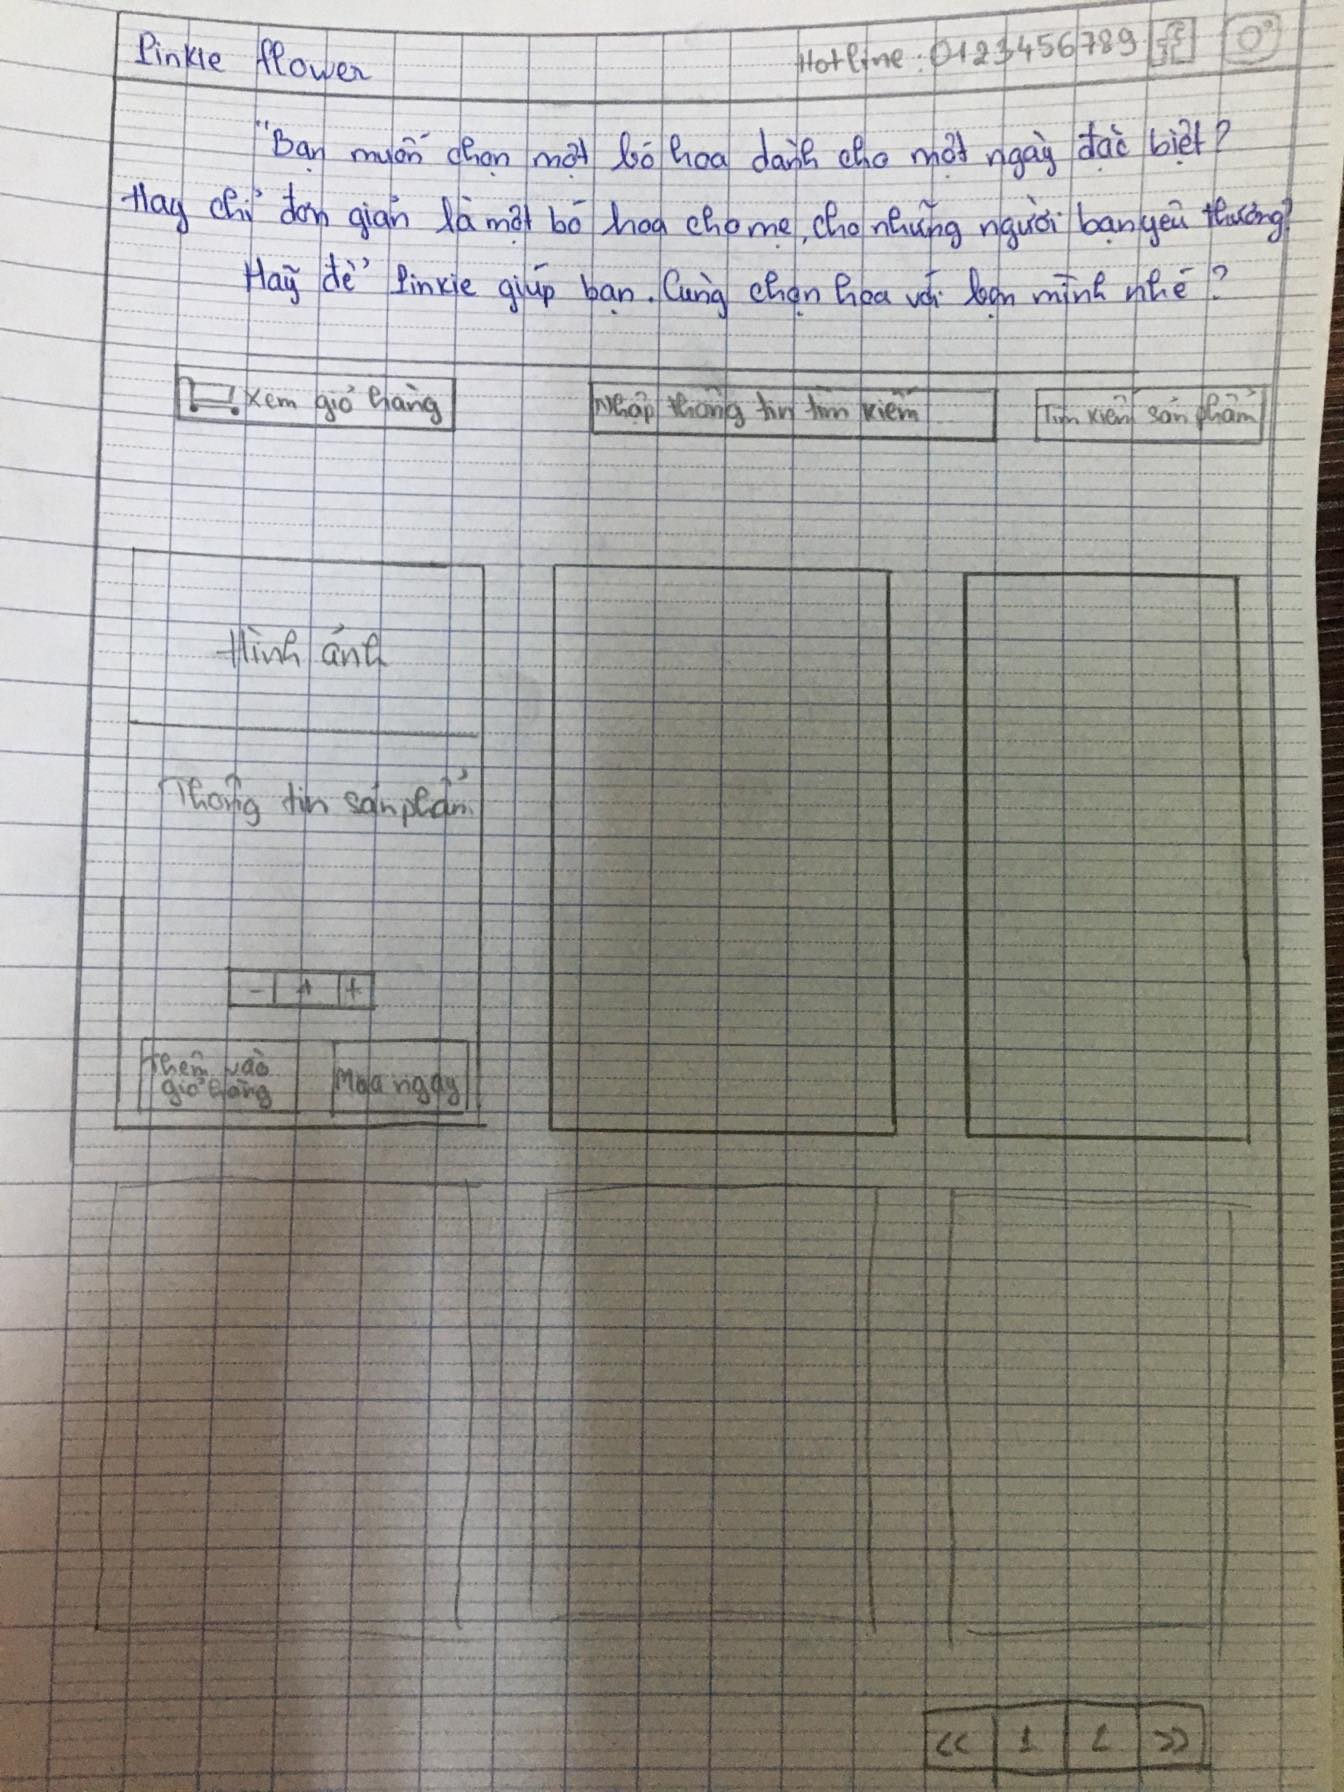 Pinkie flower
Hotline: 0123456789
"Bạn muốn chọn một bó hoa dành cho một ngày đặc biệt?
Hay chỉ đơn giản là một bó hoa cho mẹ, cho những người bạn yêu thương?
Hãy để Pinkie giúp bạn. Cùng chọn hoa với bọn mình nhé?
Xem giỏ hàng
Nhập thông tin tìm kiếm
Tìm kiếm sản phẩm
Hình ảnh
Thông tin sản phẩm
- 1 +
Thêm vào
giỏ hàng
Mua ngay
<< 1 2 >>